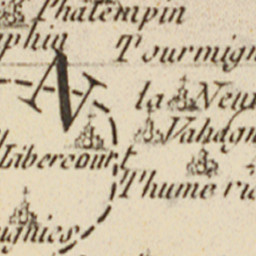 Phalempin
phin
Tourmign
N
la Neuv
Vahagn
Libercourt
Thumerie
ugnies